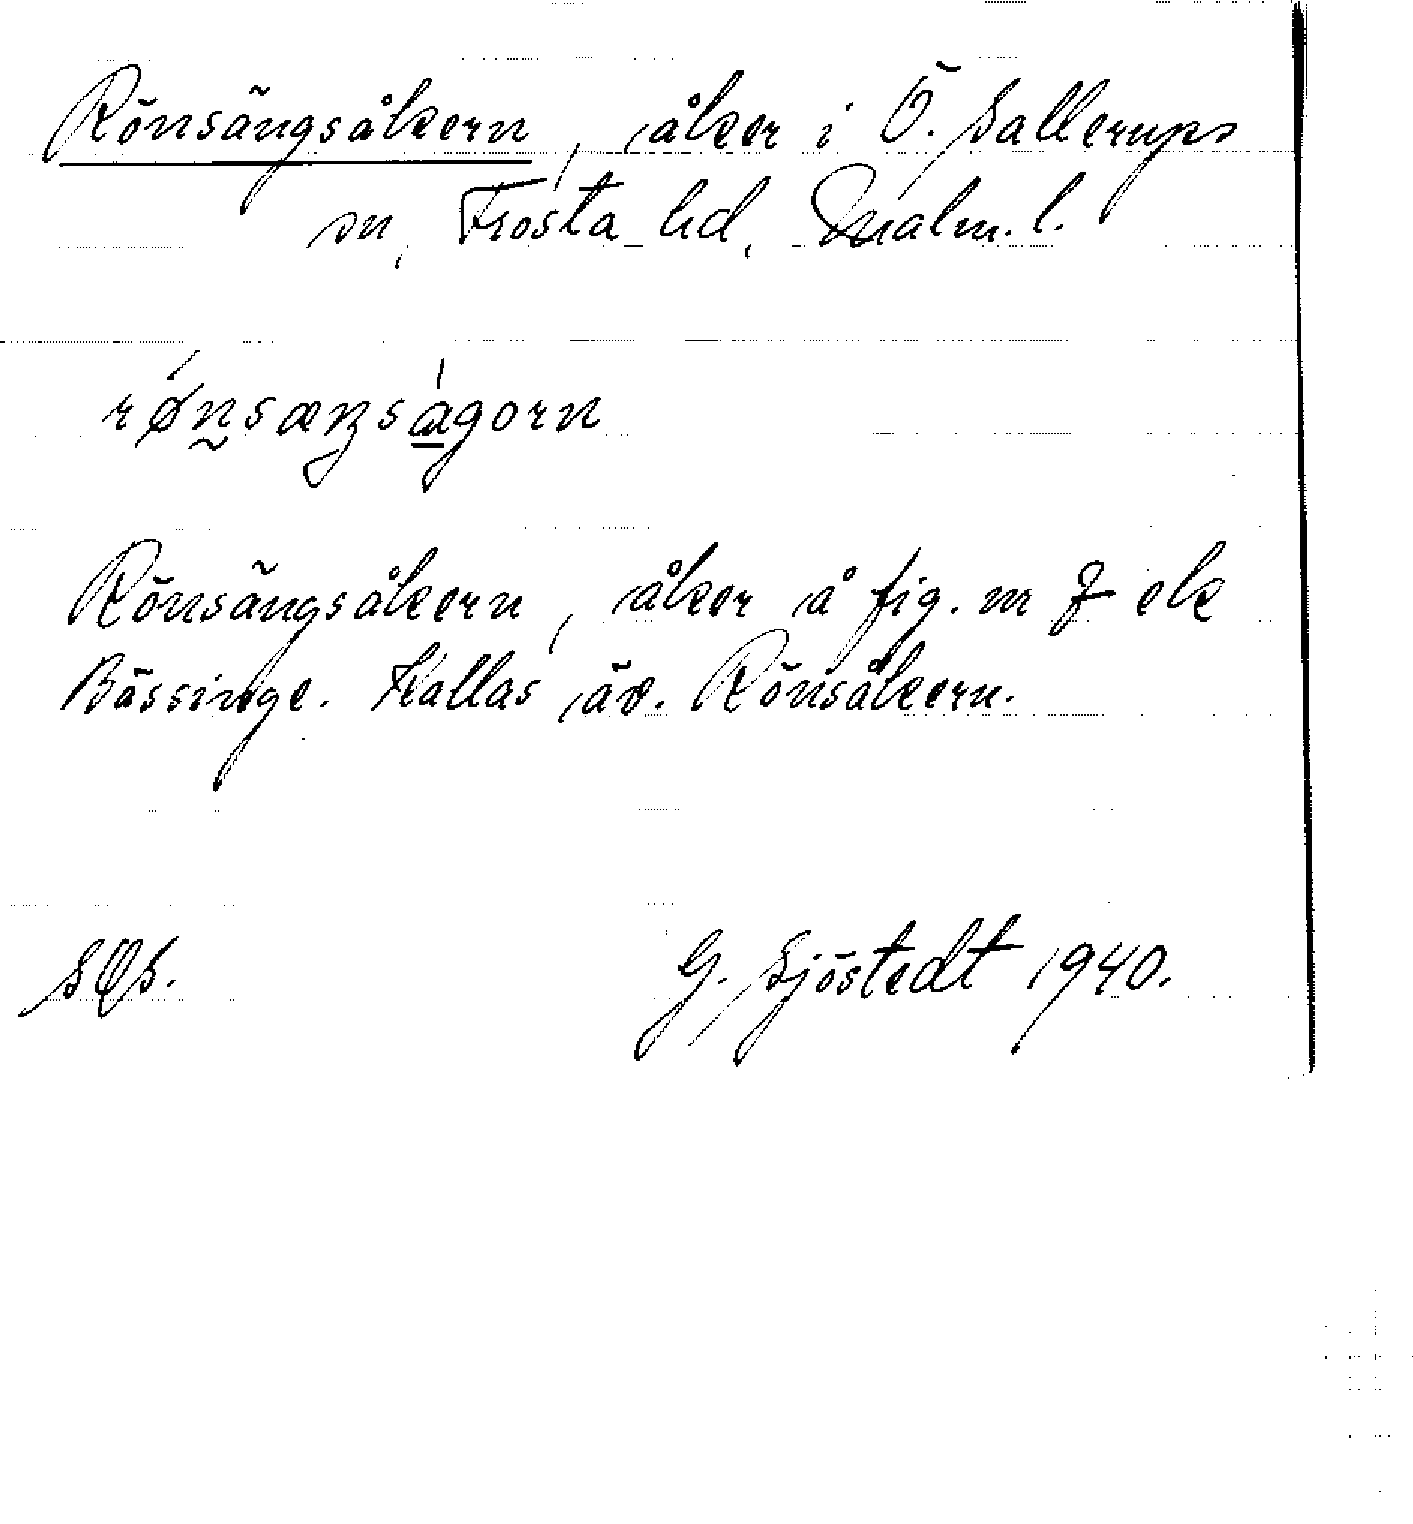 Rönsängsåkern, åker i Ö. Sallerups
sn, Frosta hd, Malm. l.
rǿn̰sæŋsa̲̍gorn
Rönsängsåkern, åker å fig. nr 7 ek
Bössinge. Kallas äv. Rönsåkern.
G. Sjöstedt 1940.